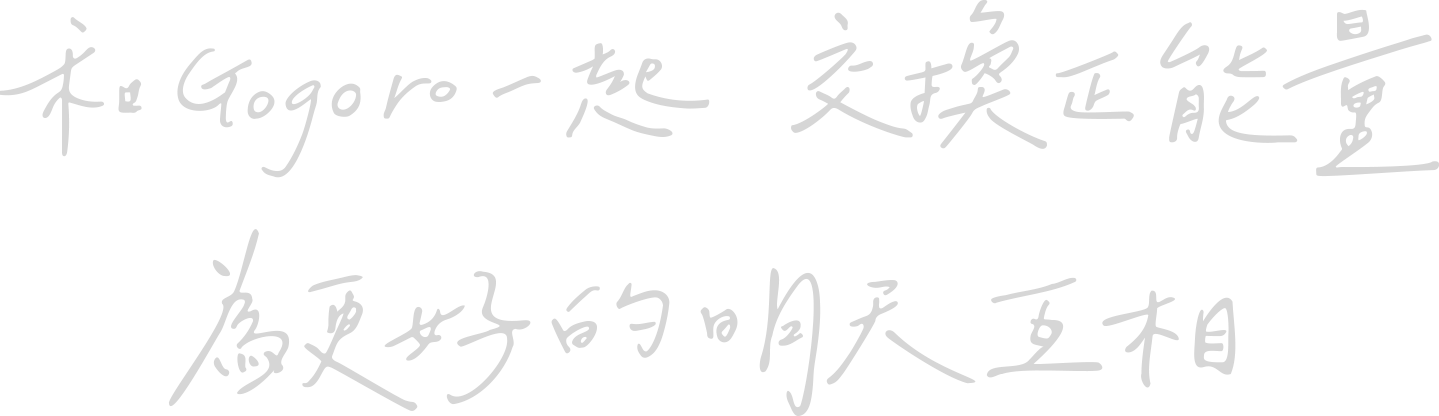 和Gogoro一起 交換正能量
為更好的明天互相